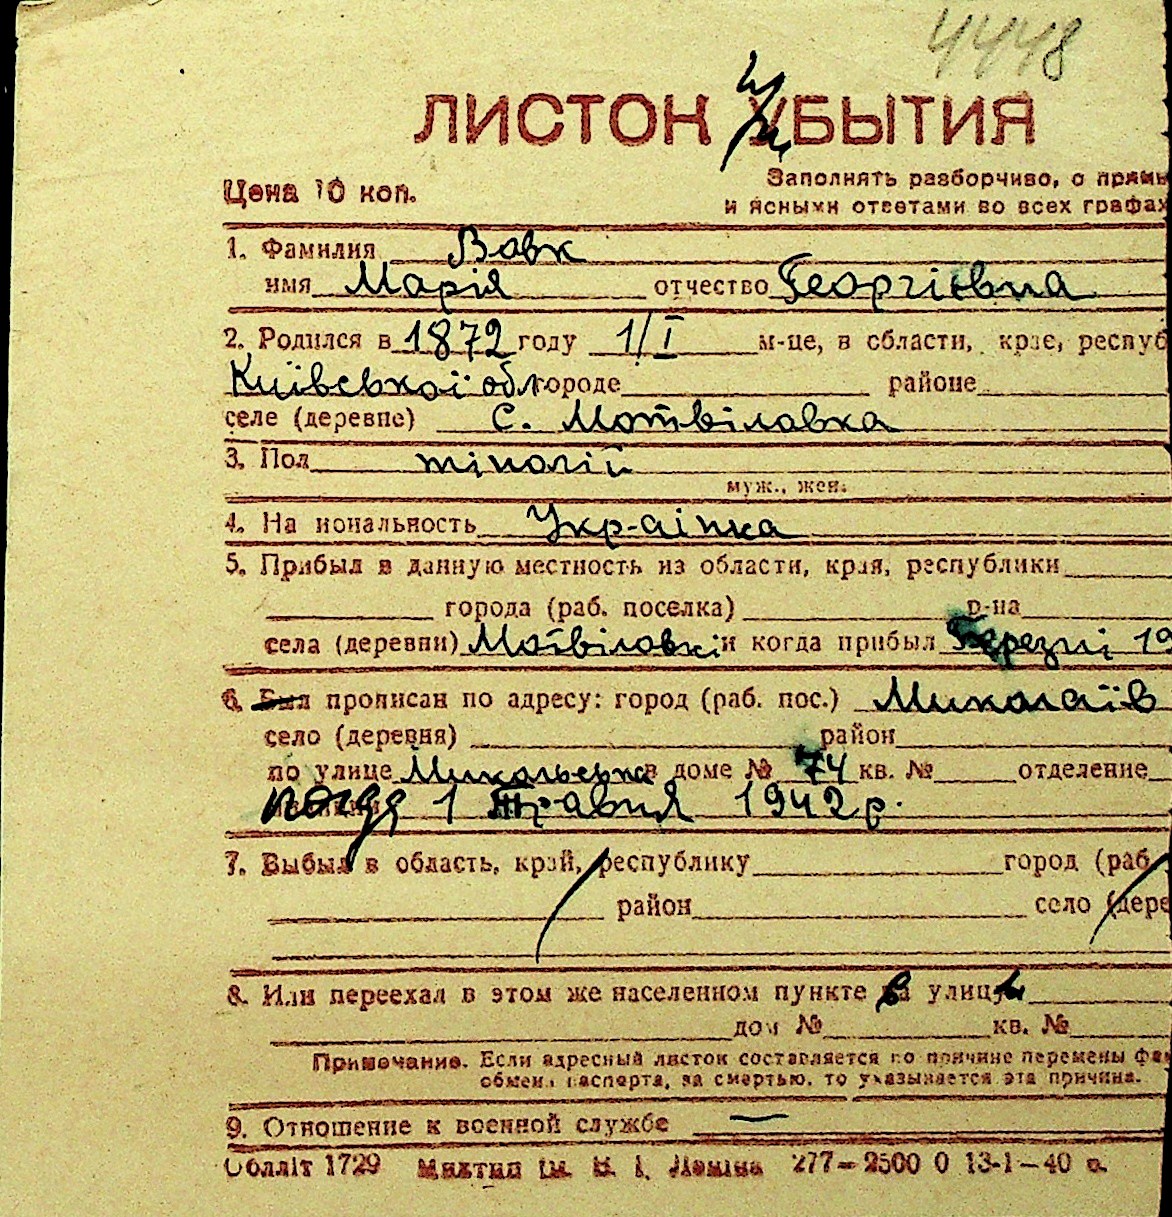 4448
ЛИСТОК УБЫТИЯ
Цена 10 коп.
Заполнять разборчиво, с прямы
и ясными ответами во всех графах
1. Фамилия Вовк
имя Марія отчество Георгіевна
2. Родился в 1872 году 1/I м-це, в области, крае, респуб
Київської обл городе районе
селе (деревне) с. Мотвіловка
3. Пол жіночій
муж., жен.
4. Национальность Українка
5. Прибыл в данную местность из области, края, республики
города (раб. поселка) р-на
села (деревни) Мотвіловкі и когда прибыл Березні 19
6. Был прописан по адресу: город (раб. пос.) Миколаїв
село (деревня) район
по улице Микольська в доме № 74 кв. № отделение
1 Травня 1942 р.
7. Выбыл в область, край, республику город (раб
район село (дере
8. Или переехал в этом же населенном пункте в улицу
дом № кв. №
Примечание. Если адресный листок составляется по причине перемены фа
обмена паспорта, за смертью, то указывается эта причина.
9. Отношение к военной службе —
Обліт 1729 ім. В. І. Леніна 277—2500 0 13-1—40 р.